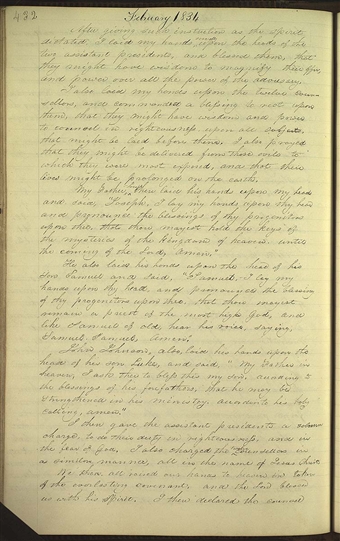 432
February 1834
After giving such instruction as the Spirit
dictated I laid my hands upon the heads of the
two assistant presidents, and blessed them, that
they might have wisdom to magnify their office,
and power over all the power of the adversary.
I also laid my hands upon the twelve coun-
sellors, and commanded a blessing to rest upon
them, that they might have wisdom and power
to counsel in righteousness, upon all subjects,
that might be laid before them. I also prayed
that they might be delivered from those evils to
which they were most exposed, and that their
lives might be prolonged on the earth.
My Father, then laid his hands upon my head
and said, "Joseph, I lay my hands upon thy head
and pronounce the blessings of thy progenitors
upon thee, that thou mayest hold the keys of
the mysteries of the Kingdom of heaven until
the coming of the Lord, Amen."
He also laid his hands upon the head of his
son Samuel and said, "Samuel, I lay my
hands upon thy head, and pronounce the blessing
of thy progenitors upon thee, that thou mayest
remain a priest of the most high God, and
like Samuel of old, hear his voice, saying,
Samuel, Samuel, Amen."
John Johnson, also, laid his hands upon the
head of his son Luke, and said, "My Father in
heaven, I ask thee to bless this my son, according to
the blessings of his forefathers, that he may be
strengthened in his ministry, according to his holy
calling, amen."
I then gave the assistant presidents a solemn
charge, to do their duty in righteousness, and in
the fear of God, I also charged the twelve counsellors in
a similar manner, all in the name of Jesus Christ.
We then all raised our hands to heaven in token
of the everlasting covenant, and the Lord blessed
us with his Spirit. I then declared the council